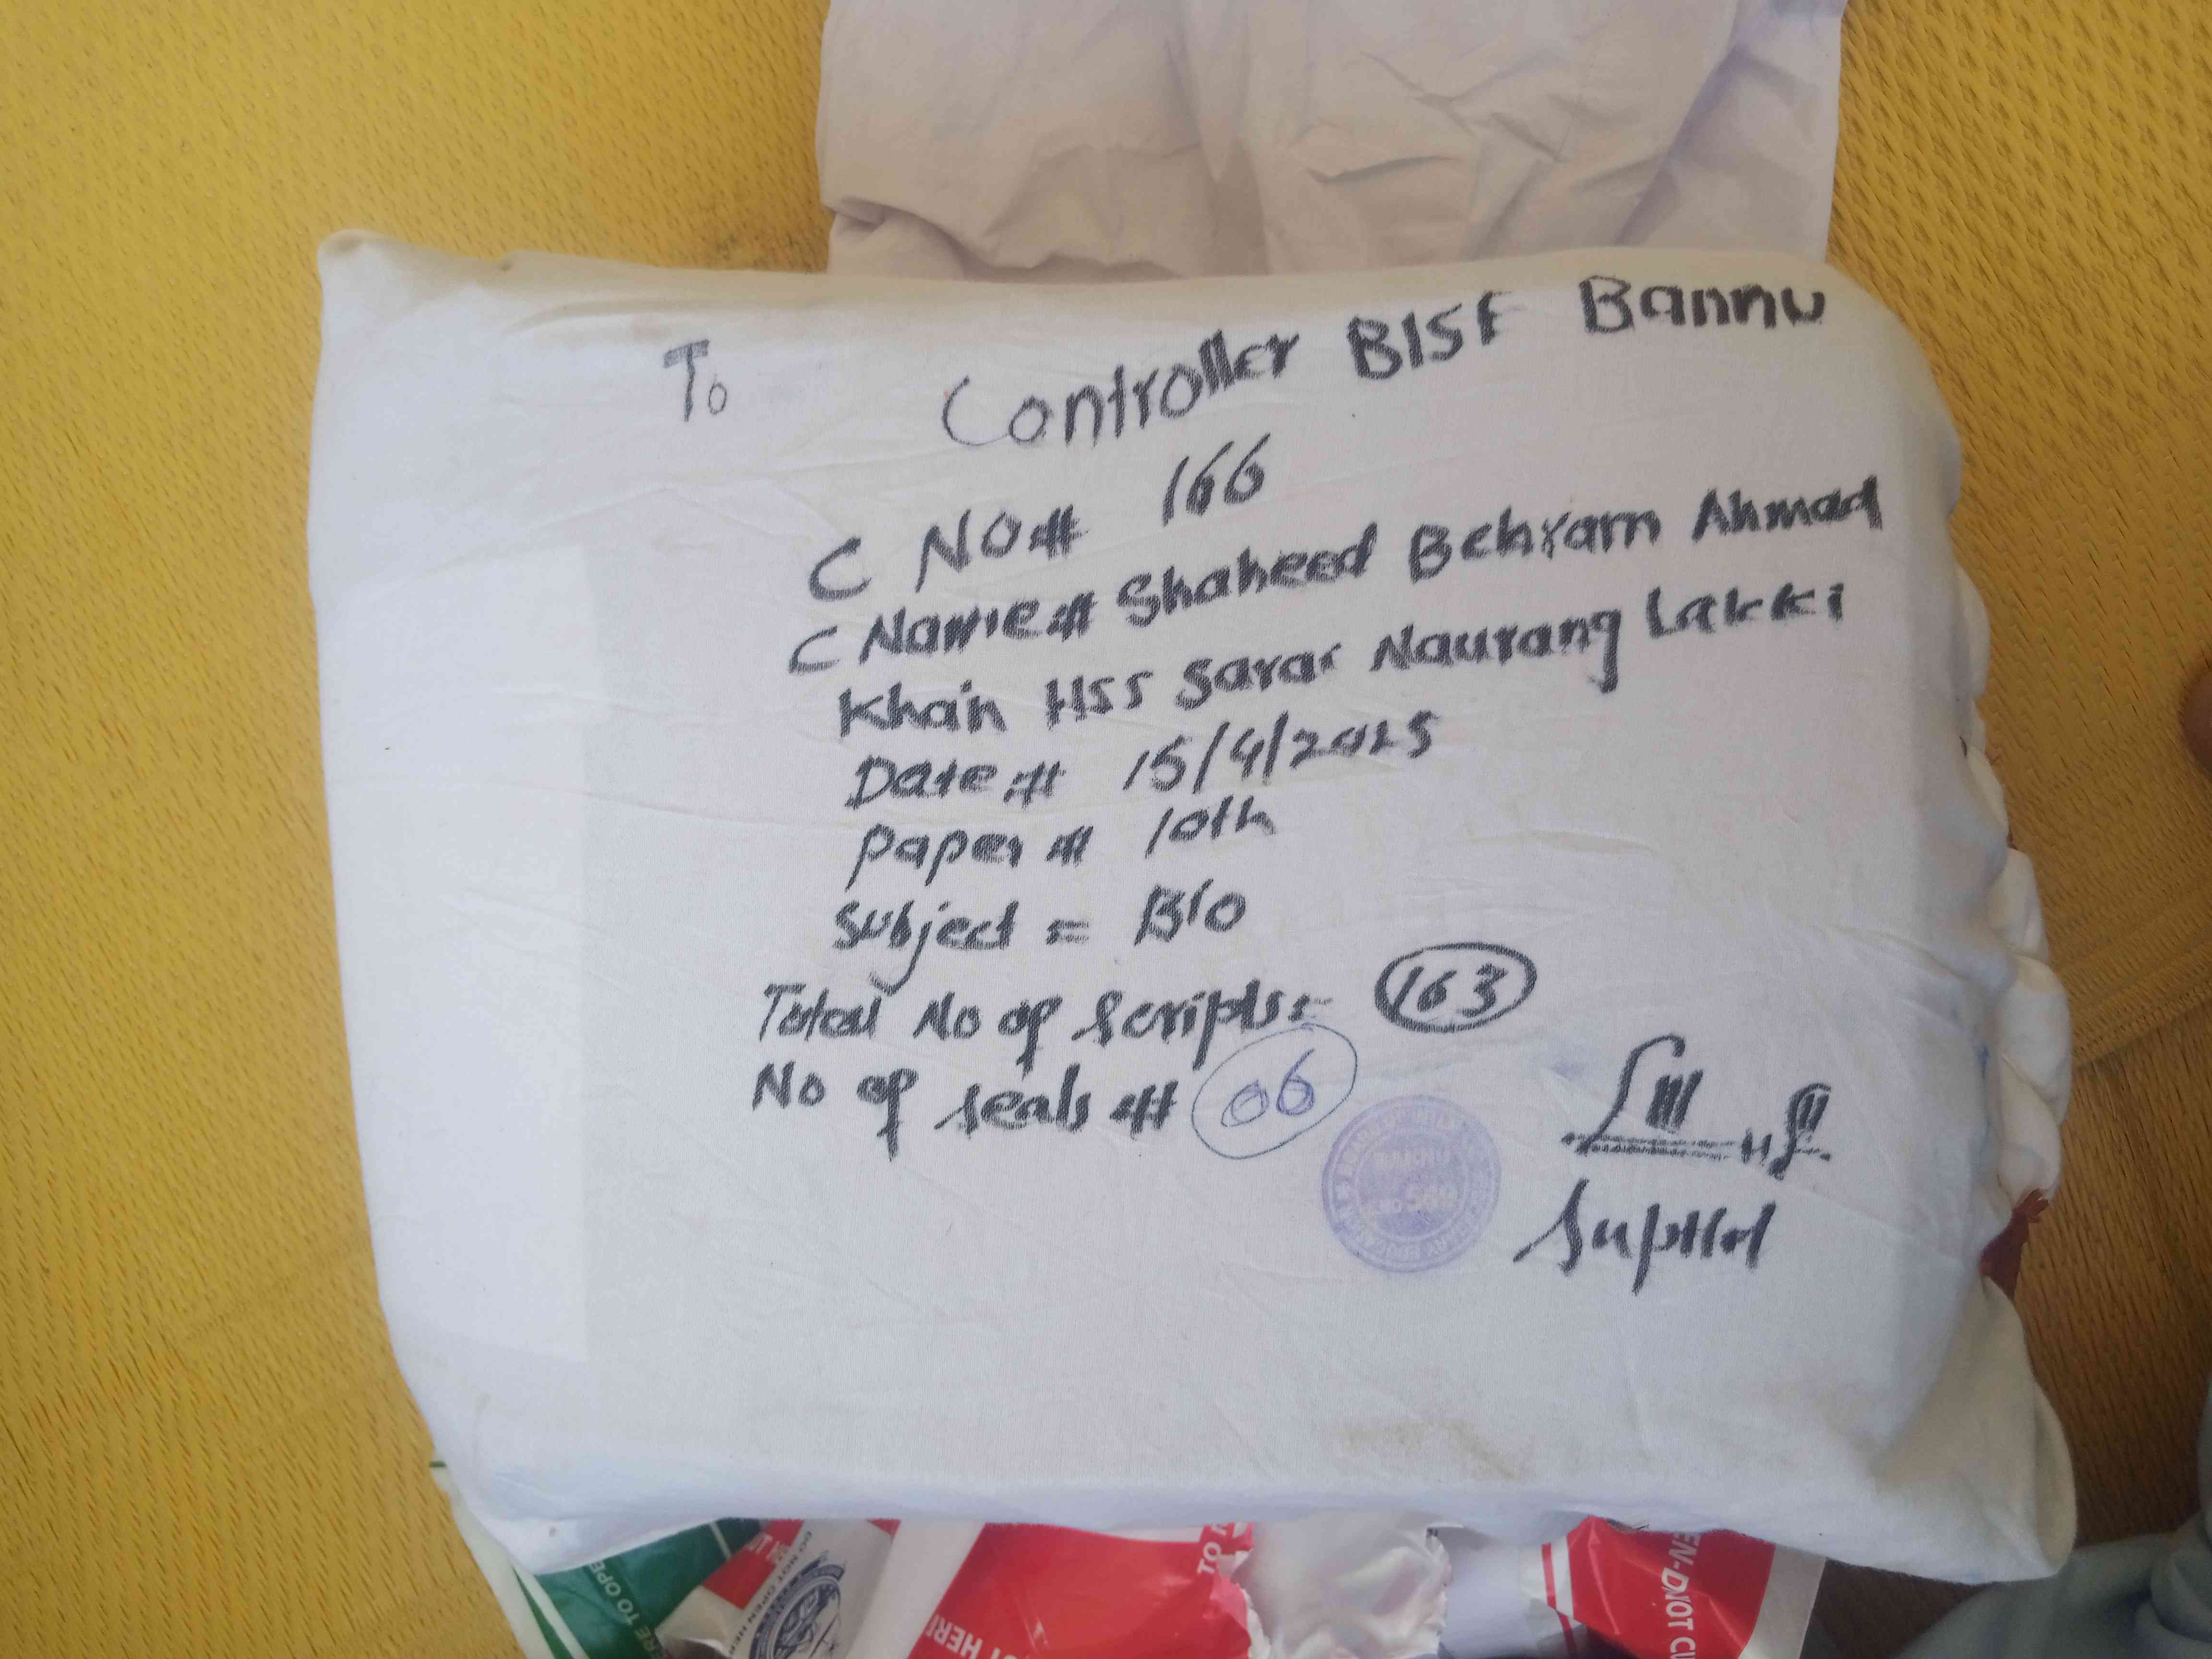 To Controller BISE Bannu
C NO# 166
C Name# Shaheed Behram Ahmad
Khan HSS Sarai Naurang Lakki
Date# 15/4/2025
Paper# 10th
Subject = Bio
Total No of Scripts= 163
No of seals # 06
Suptt
BANNU
TO OPE
DO NOT OPEN HER
T HERE
TO
EN-D
OT CU